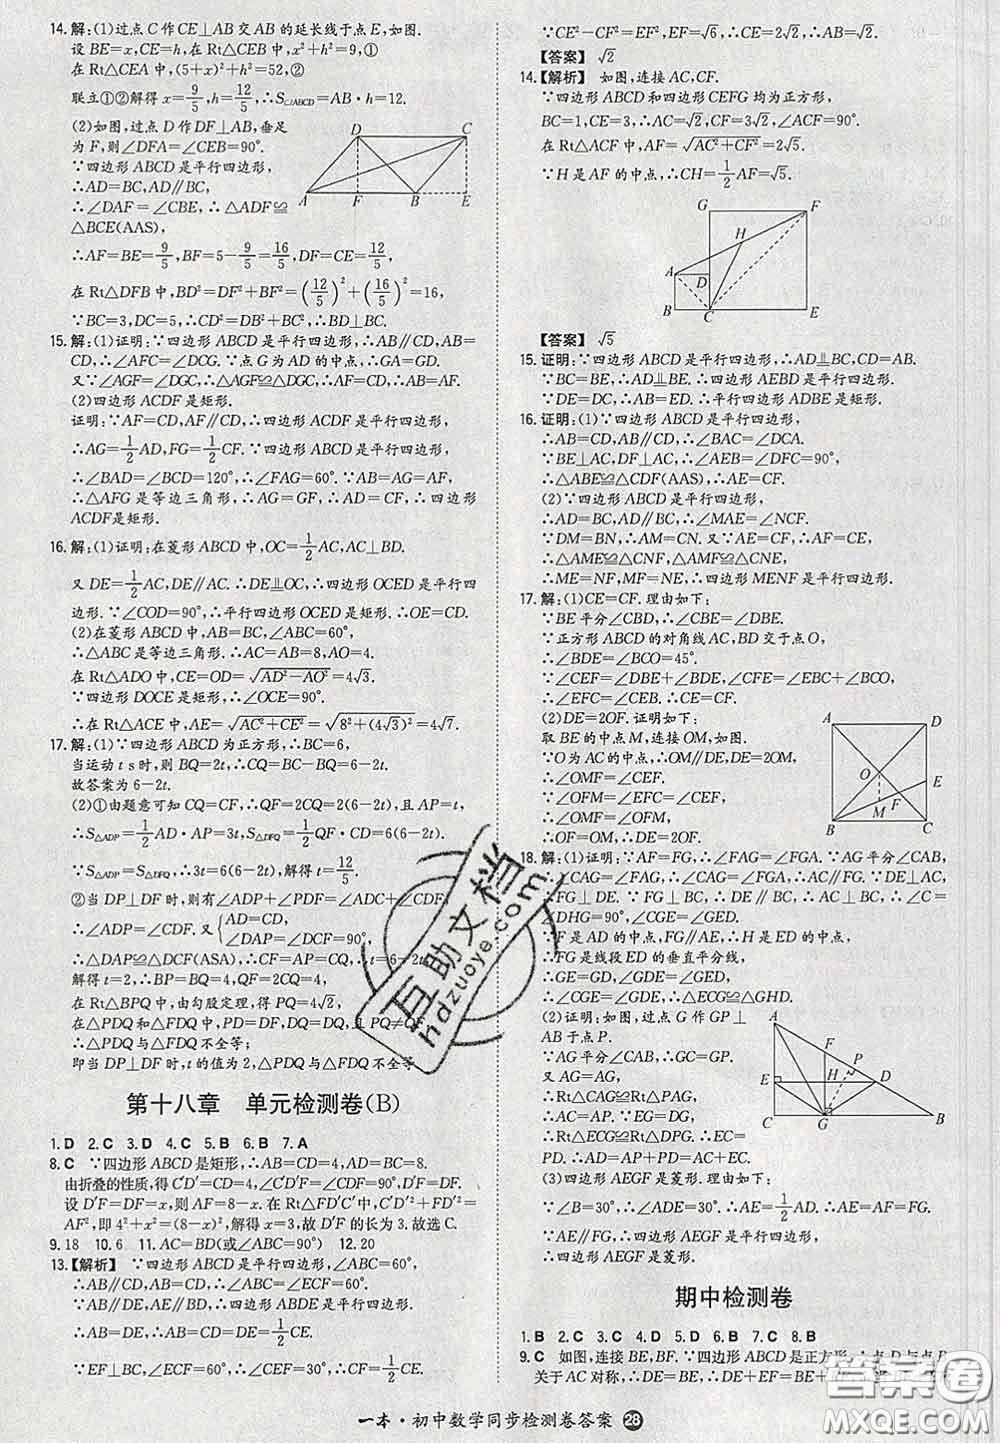 14.解:(1)过点C作CE⊥AB交AB的延长线于点E,如图.
设BE=x,CE=h,在Rt△CEB中,x²+h²=9,①
在Rt△CEA中,(5+x)²+h²=52,②
联立①②解得x=9/5,h=12/5,∴S▱ABCD=AB·h=12.
(2)如图,过点D作DF⊥AB,垂足
为F,则∠DFA=∠CEB=90°.
∵四边形ABCD是平行四边形,
∴AD=BC,AD∥BC,
∴∠DAF=∠CBE,∴△ADF≌
△BCE(AAS),
D C A F B E
∴AF=BE=9/5,BF=5-9/5=16/5,DF=12/5.
在Rt△DFB中,BD²=DF²+BF²=(12/5)²+(16/5)²=16,
∵BC=3,DC=5,∴CD²=DB²+BC²,∴BD⊥BC.
15.解:(1)证明:∵四边形ABCD是平行四边形,∴AB∥CD,AB=CD,
∴∠AFC=∠DCG.∵点G为AD的中点,∴GA=GD.
又∵∠AGF=∠DGC,∴△AGF≌△DGC,∴AF=CD,∴AB=AF.
(2)四边形ACDF是矩形.
证明:∵AF=CD,AF∥CD,∴四边形ACDF是平行四边形,
∴AG=1/2AD,FG=1/2CF.∵四边形ABCD是平行四边形,
∴∠BAD=∠BCD=120°,∴∠FAG=60°.∵AB=AG=AF,
∴△AFG是等边三角形,∴AG=GF,∴AD=CF,∴四边形
ACDF是矩形.
16.解:(1)证明:在菱形ABCD中,OC=1/2AC,AC⊥BD.
又DE=1/2AC,DE∥AC,∴DE∥=OC,∴四边形OCED是平行四
边形.∵∠COD=90°,∴平行四边形OCED是矩形.∴OE=CD.
(2)在菱形ABCD中,AB=BC,∠ABC=60°,
∴△ABC是等边三角形,∴AC=AB=8,AO=4.
在Rt△ADO中,CE=OD=√(AD²-AO²)=4√3.
∵四边形DOCE是矩形,∴∠OCE=90°.
∴在Rt△ACE中,AE=√(AC²+CE²)=√(8²+(4√3)²)=4√7.
17.解:(1)∵四边形ABCD为正方形,∴BC=6,
当运动t s时,则BQ=2t,∴CQ=BC-BQ=6-2t.
故答案为6-2t.
(2)①由题意可知CQ=CF,∴QF=2CQ=2(6-2t),且AP=t,
∴S△ADP=1/2AD·AP=3t,S△DFQ=1/2QF·CD=6(6-2t),
∵S△ADP=S△DFQ,∴3t=6(6-2t),解得t=12/5.
②当DP⊥DF时,则有∠ADP+∠PDF=∠ADC+∠CDF,
∴∠ADP=∠CDF.又{AD=CD,
∠DAP=∠DCF=90°,
∴△DAP≌△DCF(ASA),∴CF=AP,∴t=6-2t,
解得t=2,∴BP=BQ=4,
在Rt△BPQ中,由勾股定理,得PQ=4√2,
在△PDQ和△FDQ中,PD=DF,DQ=DQ,且PQ≠QF,
∴△PDQ与△FDQ不全等;
即当DP⊥DF时,t的值为2,△PDQ与△FDQ不全等.
第十八章 单元检测卷(B)
1.D 2.C 3.D 4.C 5.B 6.B 7.A
8.C ∵四边形ABCD是矩形,∴AB=CD=4,AD=BC=8.
由折叠的性质,得C'D'=CD=4,∠C'D'F=∠D=90°,D'F=DF,
设D'F=DF=x,则AF=8-x.在Rt△FD'C'中,C'D'²+FD'²=
AF²,即4²+x²=(8-x)²,解得x=3,故D'F的长为3.故选C.
9.18 10.6 11.AC=BD(或∠ABC=90°) 12.20
13.【解析】∵四边形ABCD是平行四边形,∠ABC=60°,
∴AB∥CD,AB=CD,∴∠ABC=∠ECF=60°.
∵AB∥DE,AE∥BD,∴四边形ABDE是平行四边形.
∴AB=DE,∴AB=DE=CD=1/2CE.
∵EF⊥BC,∠ECF=60°,∴∠CEF=30°,∴CF=1/2CE.
∵CE²-CF²=EF²,EF=√6,∴CE=2√2,∴AB=√2.
【答案】 √2
14.【解析】 如图,连接AC,CF.
∵四边形ABCD和四边形CEFG均为正方形,
BC=1,CE=3,∴AC=√2,CF=3√2,∠ACF=90°.
在Rt△ACF中,AF=√(AC²+CF²)=2√5.
∵H是AF的中点,∴CH=1/2AF=√5.
G F H A D B C E
【答案】 √5
15.证明:∵四边形ABCD是平行四边形,∴AD∥=BC,CD=AB.
∵BC=BE,∴AD∥=BE.∴四边形AEBD是平行四边形.
∵DE=DC,∴AB=ED.∴平行四边形ADBE是矩形.
16.证明:(1)∵四边形ABCD是平行四边形,
∴AB=CD,AB∥CD,∴∠BAC=∠DCA.
∵BE⊥AC,DF⊥AC,∴∠AEB=∠CFD=90°.
∴△ABE≌△CDF(AAS),∴AE=CF.
(2)∵四边形ABCD是平行四边形,
∴AD=BC,AD∥BC,∴∠MAE=∠NCF.
∵DM=BN,∴AM=CN.又∵AE=CF,
∴△AME≌△CNF,△AMF≌△CNE,
∴ME=NF,MF=NE,∴四边形MENF是平行四边形.
17.解:(1)CE=CF.理由如下:
∵BE平分∠CBD,∴∠CBE=∠DBE.
∵正方形ABCD的对角线AC,BD交于点O,
∴∠BDE=∠BCO=45°.
∵∠CEF=∠DBE+∠BDE,∠CFE=∠EBC+∠BCO,
∴∠EFC=∠CEB.∴CE=CF.
(2)DE=2OF.证明如下:
取BE的中点M,连接OM,如图.
∵O为AC的中点,∴OM∥DE,DE=2OM,
∴∠OMF=∠CEF.
∵∠OFM=∠EFC=∠CEF,
∴∠OMF=∠OFM,
∴OF=OM,∴DE=2OF.
A D O E F B M C
18.解:(1)证明:∵AF=FG,∴∠FAG=∠FGA.∵AG平分∠CAB,
∴∠CAG=∠FAG,∴∠CAG=∠FGA,∴AC∥FG.∵DE⊥AC,
∴FG⊥DE.∵FG⊥BC,∴DE∥BC,∴AC⊥BC,∴∠C=
∠DHG=90°,∠CGE=∠GED.
∵F是AD的中点,FG∥AE,∴H是ED的中点,
∴FG是线段ED的垂直平分线,
∴GE=GD,∠GDE=∠GED,
∴∠CGE=∠GDE,∴△ECG≌△GHD.
(2)证明:如图,过点G作GP⊥
AB于点P.
∵AG平分∠CAB,∴GC=GP.
又∵AG=AG,
∴Rt△CAG≌Rt△PAG,
∴AC=AP.由(1)得EG=DG,
∴Rt△ECG≌Rt△DPG.∴EC=
PD.∴AD=AP+PD=AC+EC.
A F P E H D C G B
(3)四边形AEGF是菱形.理由如下:
∵∠B=30°,∴∠ADE=30°.∴AE=1/2AD,∴AE=AF=FG.
∵AE∥FG,∴四边形AEGF是平行四边形,
∴四边形AEGF是菱形.
期中检测卷
1.B 2.C 3.C 4.D 5.D 6.B 7.C 8.B
9.C 如图,连接BE,BF.∵四边形ABCD是正方形,∴点D与点B
关于AC对称,∴DE=BE,
一本·初中数学同步检测卷答案 28
互助文档
hdzuoye.com
答案圈
MXQE.COM